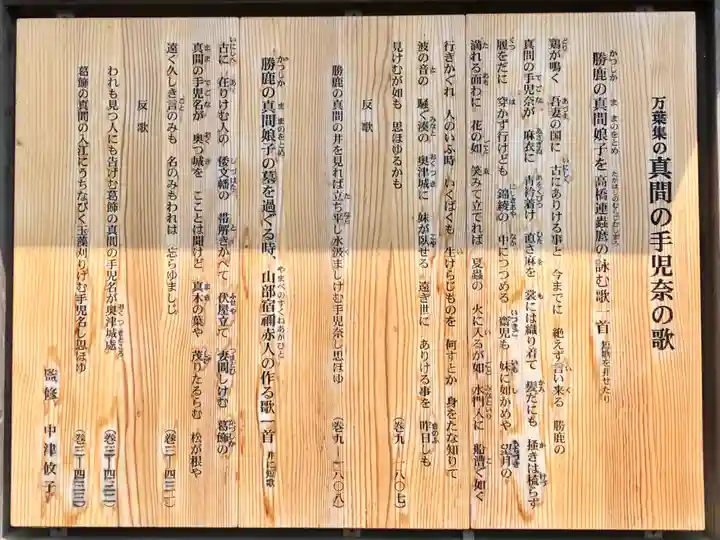 万葉集の真間の手児奈の歌
勝鹿の真間娘子を高橋連蟲麿の詠む歌一首 短歌を幷せたり
鶏が鳴く 吾妻の国に 古にありける事と 今までに 絶えず言い来る 勝鹿の
真間の手児奈が 麻衣に 青衿着け 直さ麻を 裳には織り着て 髪だにも 掻きは梳らず
履をだに 穿かず行けども 錦綾の 中につつめる 齋児も 妹に如かめや 望月の
満れる面わに 花の如 笑みて立てれば 夏蟲の 火に入るが如 水門入に 船漕ぐ如く
行きかぐれ 人のいふ時 いくばくも 生けらじものを 何すとか 身をたな知りて
波の音の 騒ぐ湊の 奥津城に 妹が臥せる 遠き世に ありける事を 昨日しも
見けむが如も 思ほゆるかも
(巻九 一八〇七)
反歌
勝鹿の真間の井を見れば立ち平し水汲ましけむ手児奈し思ほゆ
(巻九 一八〇八)
勝鹿の真間娘子の墓を過ぐる時、山部宿禰赤人の作る歌一首 幷に短歌
古に 在りけむ人の 倭文幡の 帯解きかへて 伏屋立て 妻問しけむ 葛飾の
真間の手児名が 奥つ城を こことは聞けど 真木の葉や 茂りたるらむ 松が根や
遠く久しき言のみも 名のみもわれは 忘らゆましじ
(巻三 四三一)
反歌
われも見つ人にも告げむ葛飾の真間の手児名が奥津城處
(巻三 四三二)
葛飾の真間の入江にうちなびく玉藻刈りけむ手児名し思ほゆ
(巻三 四三三)
監修 中津攸子